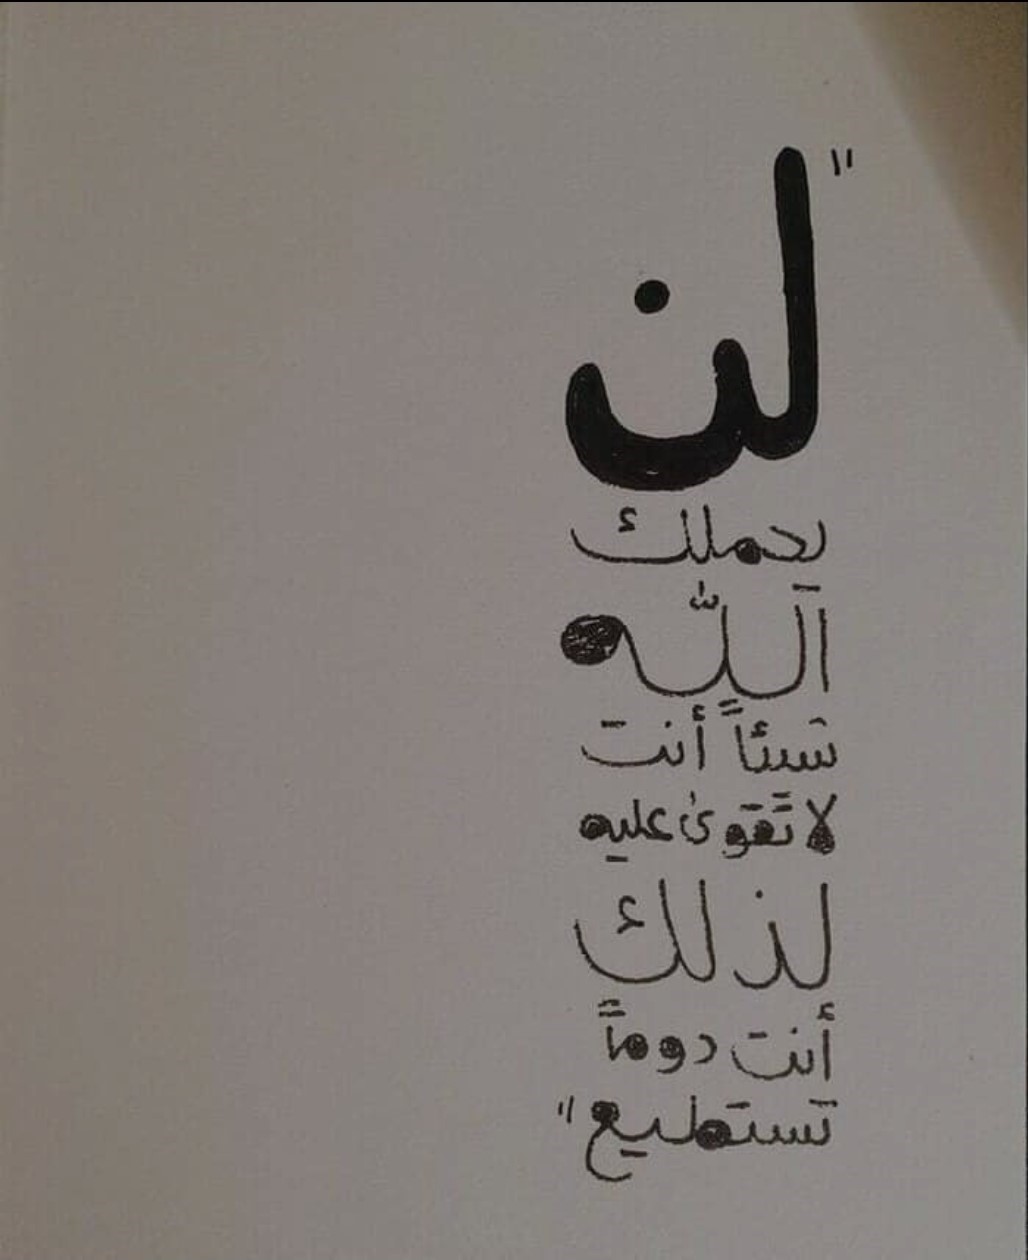 "لن
يحملك
اللّه
شيئاً أنت
لا تَقوىٰ عليه
لذلك
أنت دوماً
تستطيع"